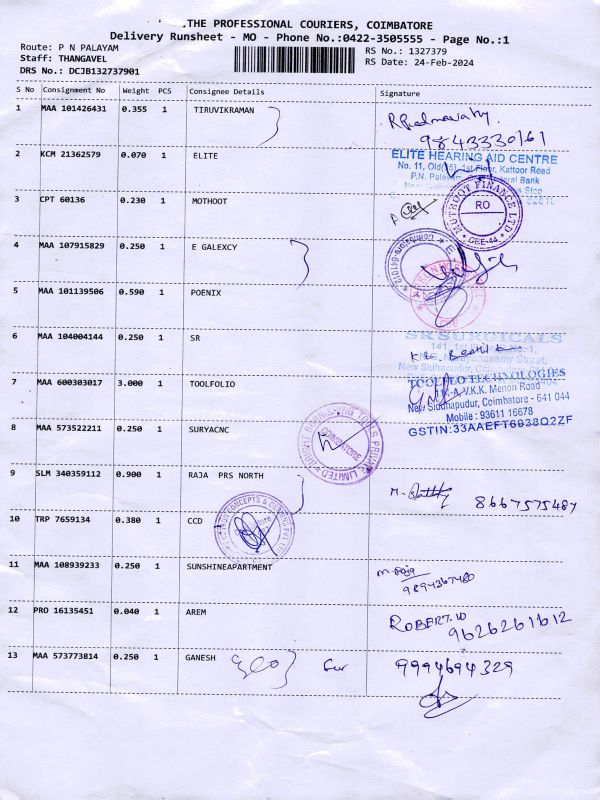 THE PROFESSIONAL COURIERS, COIMBATORE
Delivery Runsheet - MO - Phone No.:0422-3505555 - Page No.:1
Route: P N PALAYAM
Staff: THANGAVEL
DRS No.: DCJB132737901
RS No.: 1327379
RS Date: 24-Feb-2024
S No Consignment No Weight PCS Consignee Details Signature
1 MAA 101426431 0.355 1 TIRUVIKRAMAN
9843330161
2 KCM 21362579 0.070 1 ELITE
ELITE HEARING AID CENTRE
No. 11, 1st Floor, Kattoor Road
3 CPT 60136 0.230 1 MOTHOOT
MUTHOOT FINANCE LTD
RO
4 MAA 107915829 0.250 1 E GALEXCY
5 MAA 101139506 0.590 1 POENIX
6 MAA 104004144 0.250 1 SR
SR SURGICALS
New Sidhapudur,
7 MAA 600303017 3.000 1 TOOLFOLIO
TOOLFOLIO TECHNOLOGIES
V.K.K. Menon Road
New Siddhapudur, Coimbatore - 641 044
Mobile : 93611 16678
GSTIN:33AAEFT6938Q2ZF
8 MAA 573522211 0.250 1 SURYACNC
COIMBATORE
9 SLM 340359112 0.900 1 RAJA PRS NORTH
8667575487
10 TRP 7659134 0.380 1 CCD
11 MAA 108939233 0.250 1 SUNSHINEAPARTMENT
9894367480
12 PRO 16135451 0.040 1 AREM
ROBERT.W
9626261612
13 MAA 573773814 0.250 1 GANESH
9994694329